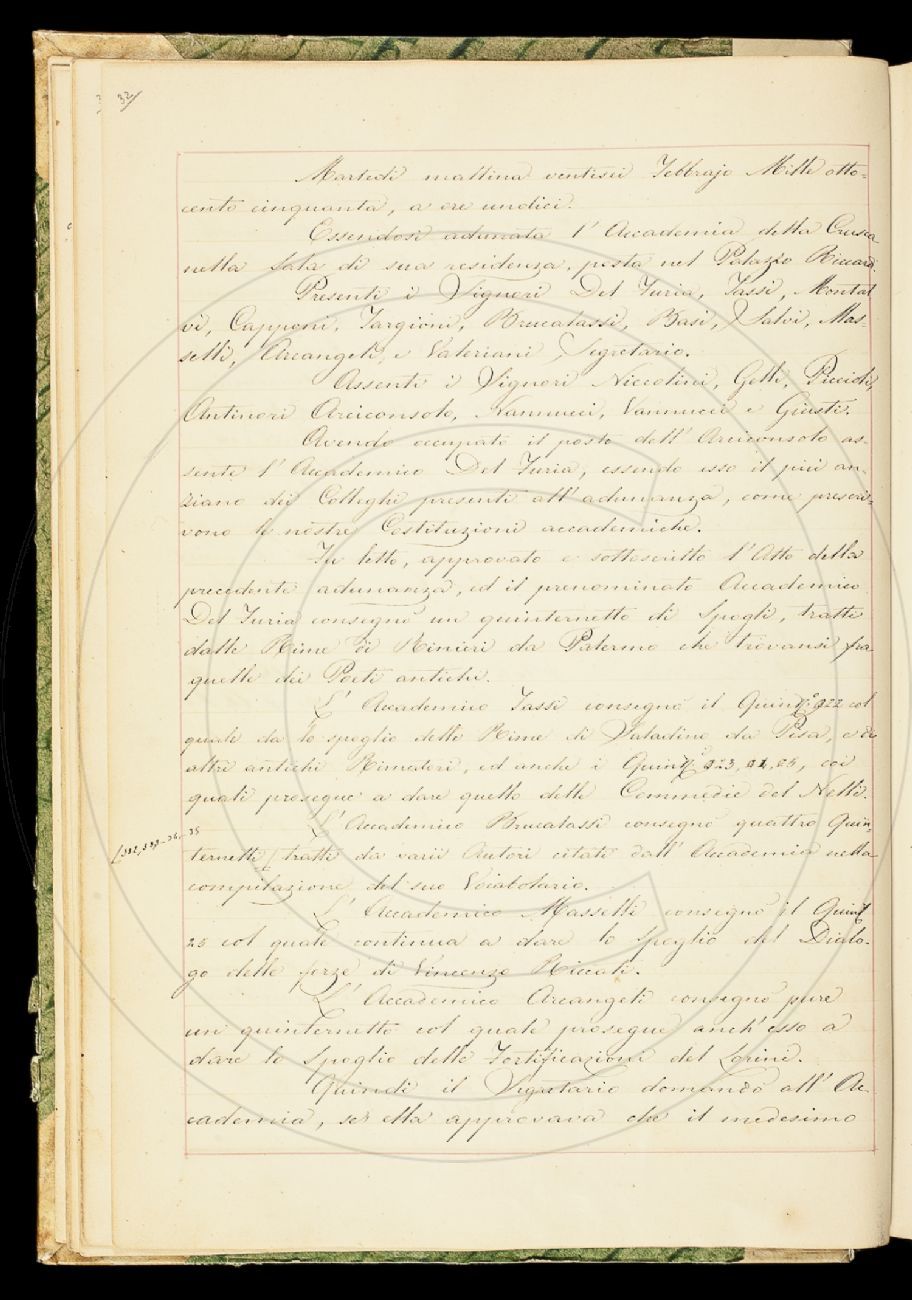 32
Martedì mattina ventisei Febbrajo Mille otto=
cento cinquanta, a ore undici.
Essendosi adunata l'Accademia della Crusca
nella Sala di sua residenza, posta nel Palazzo Riccardi.
Presenti i Signori Del Furia, Tassi, Montal
vi, Capponi, Targioni, Brucalassi, Basi, Salvi, Mas-
selli, Arcangeli, e Valeriani Segretario.
Assenti i Signori Niccolini, Gelli, Piccioli,
Antinori Arciconsolo, Nannucci, Vannucci e Giusti.
Avendo occupato il posto dell'Arciconsolo as-
sente l'Accademico Del Furia, essendo esso il più an-
ziano dei Colleghi presenti all'adunanza, come prescri-
vono le nostre Costituzioni accademiche.
Fu letto, approvato e sottoscritto l'Atto della
precedente adunanza, ed il prenominato Accademico
Del Furia consegnò un quinternetto di Spogli, tratti
dalle Rime di Rinieri da Palermo che trovansi fra
quelle dei Poeti antichi.
L'Accademico Tassi consegnò il Quint.º 922 col
quale dà lo spoglio delle Rime di Saladino da Pisa, e di
altri antichi Rimatori, ed anche i Quint. 923, 24, 25, coi
quali prosegue a dare quello delle Commedie del Nelli.
L'Accademico Brucalassi consegnò quattro Quin-
ternetti tratti da varii Autori citati dall'Accademia nella
compilazione del suo Vocabolario.
L'Accademico Masselli consegnò il Quint
25 col quale continua a dare lo Spoglio del Dialo-
go delle forze di Vincenzo Riccati.
L'Accademico Arcangeli consegnò pure
un quinternetto col quale prosegue anch'esso a
dare lo Spoglio delle Fortificazioni del Lorini.
Quindi il Segretario domandò all'Ac-
cademia, se ella approvava che il medesimo